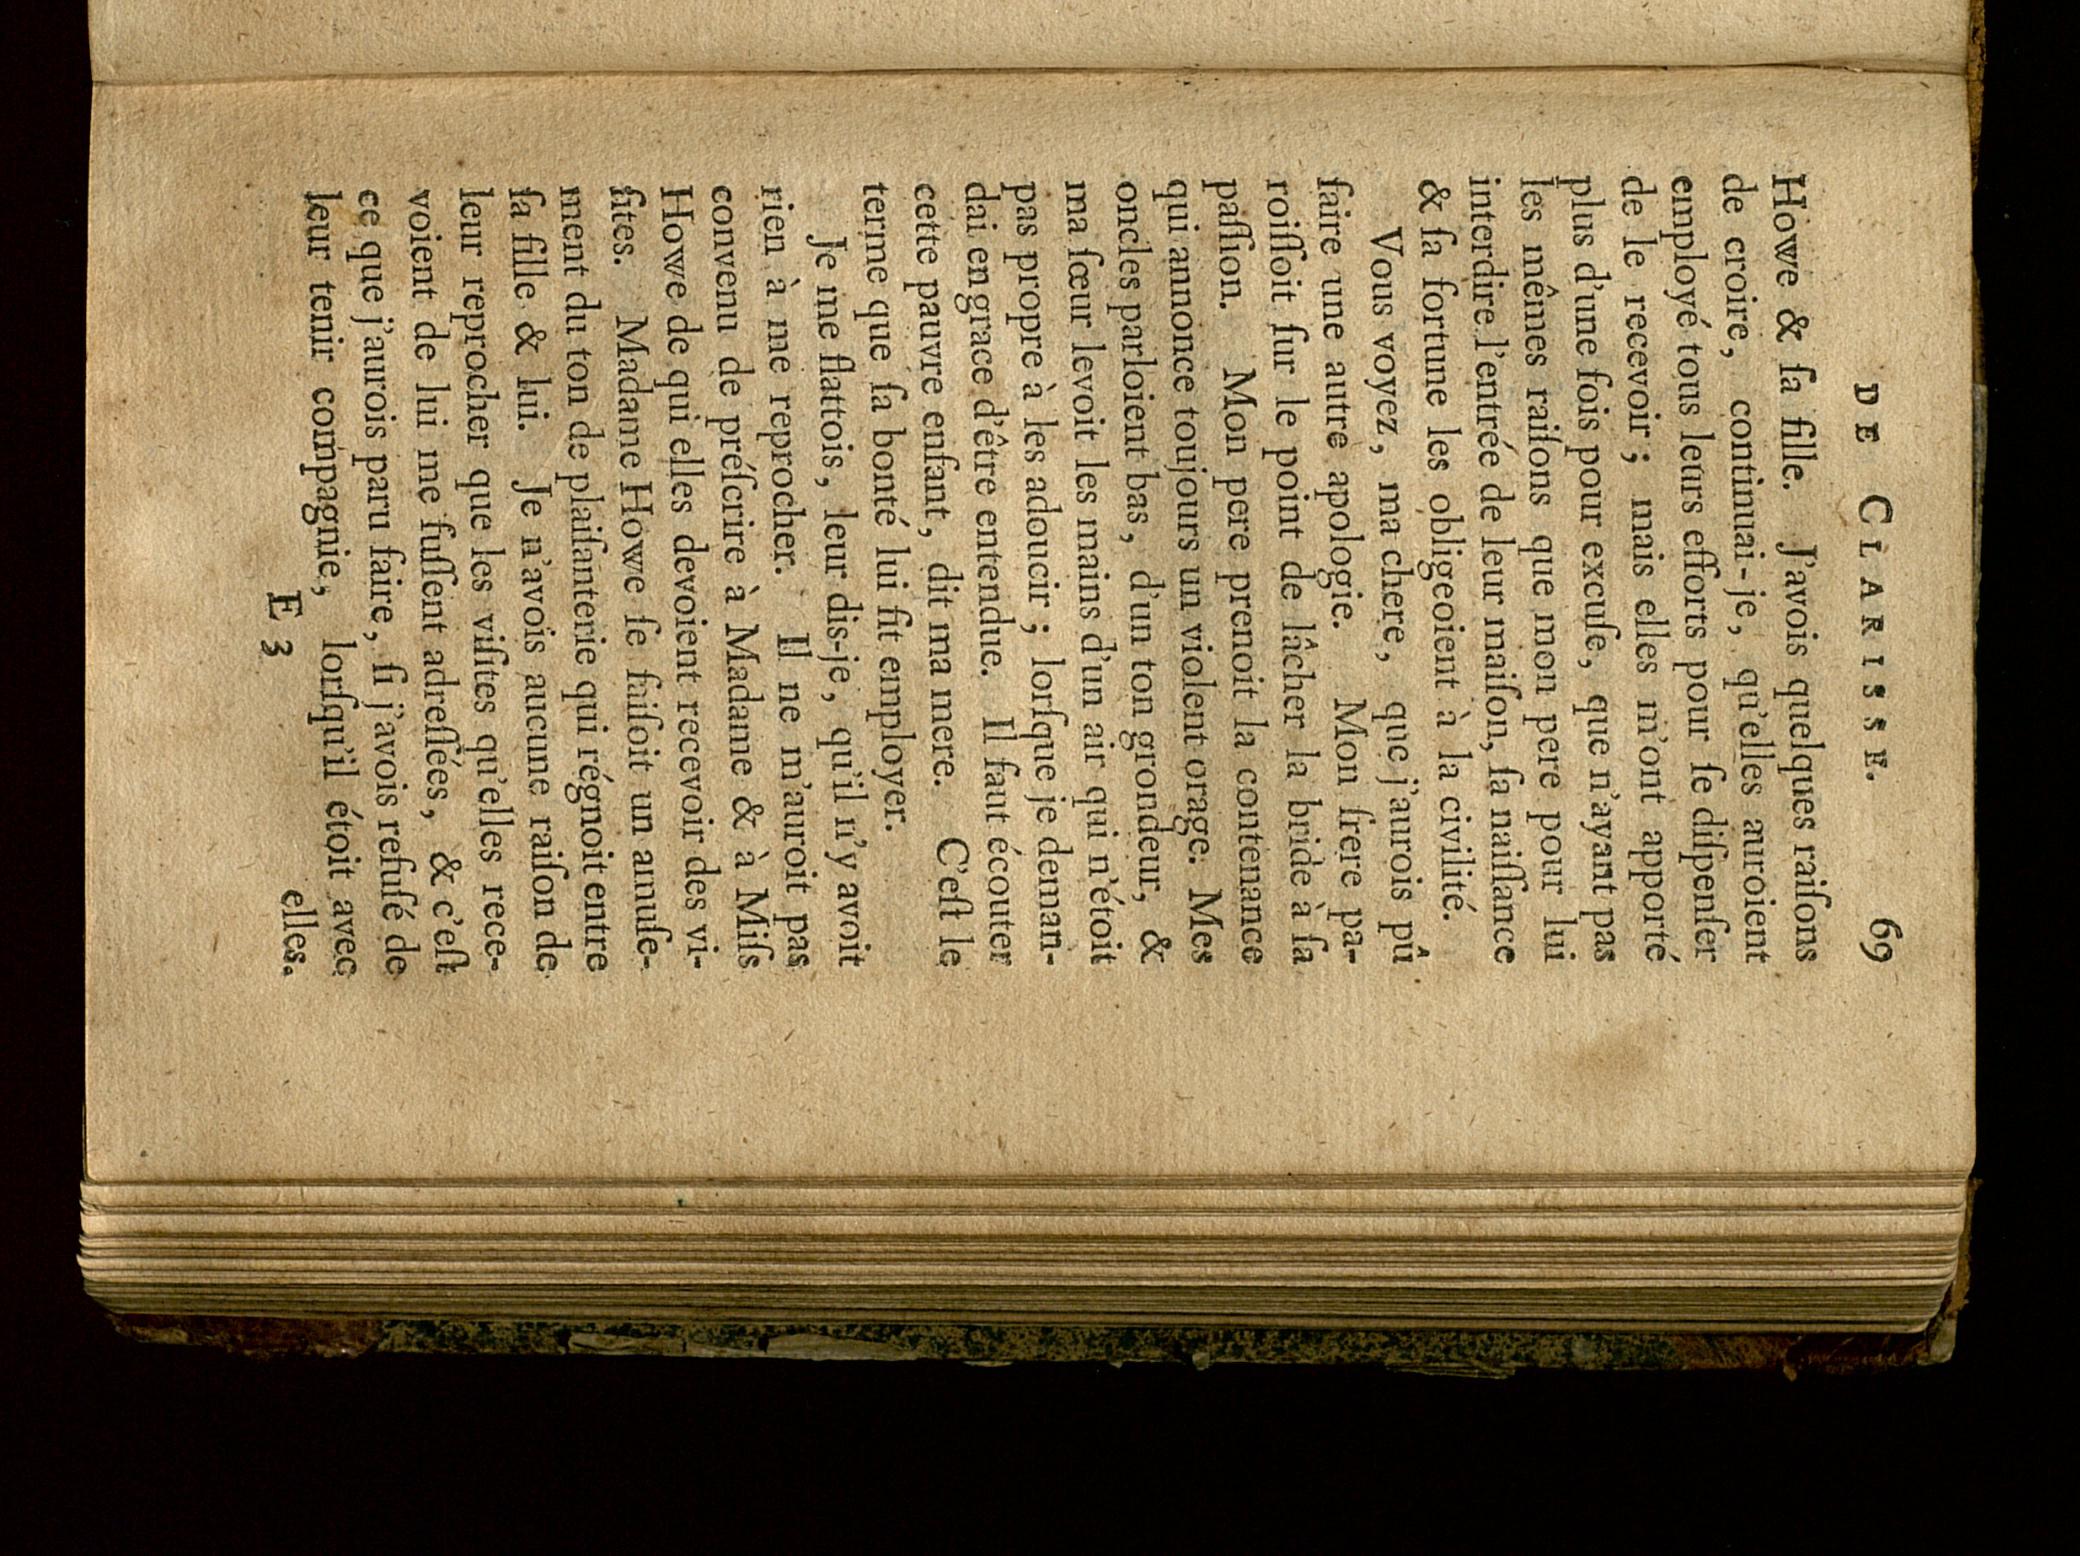 DE CLARISSE. 69
Howe & ſa fille. J'avois quelques raiſons
de croire, continuai-je, qu'elles auroient
employé tous leurs efforts pour ſe diſpenſer
de le recevoir; mais elles m'ont apporté
plus d'une fois pour excuſe, que n'ayant pas
les mêmes raiſons que mon pere pour lui
interdire l'entrée de leur maiſon, ſa naiſſance
& ſa fortune les obligeoient à la civilité.
Vous voyez, ma chere, que j'aurois pû
faire une autre apologie. Mon frere pa-
roiſſoit ſur le point de lâcher la bride à ſa
paſſion. Mon pere prenoit la contenance
qui annonce toujours un violent orage. Mes
oncles parloient bas, d'un ton grondeur, &
ma ſœur levoit les mains d'un air qui n'étoit
pas propre à les adoucir; lorſque je deman-
dai en grace d'être entendue. Il faut écouter
cette pauvre enfant, dit ma mere. C'eſt le
terme que ſa bonté lui fit employer.
Je me flattois, leur dis-je, qu'il n'y avoit
rien à me reprocher. Il ne m'auroit pas
convenu de préſcrire à Madame & à Miſs
Howe de qui elles devoient recevoir des vi-
ſites. Madame Howe ſe faiſoit un amuſe-
ment du ton de plaiſanterie qui régnoit entre
ſa fille & lui. Je n'avois aucune raiſon de
leur reprocher que les viſites qu'elles rece-
voient de lui me fuſſent adreſſées, & c'eſt
ce que j'aurois paru faire, ſi j'avois refuſé de
leur tenir compagnie, lorſqu'il étoit avec
E 3 elles.